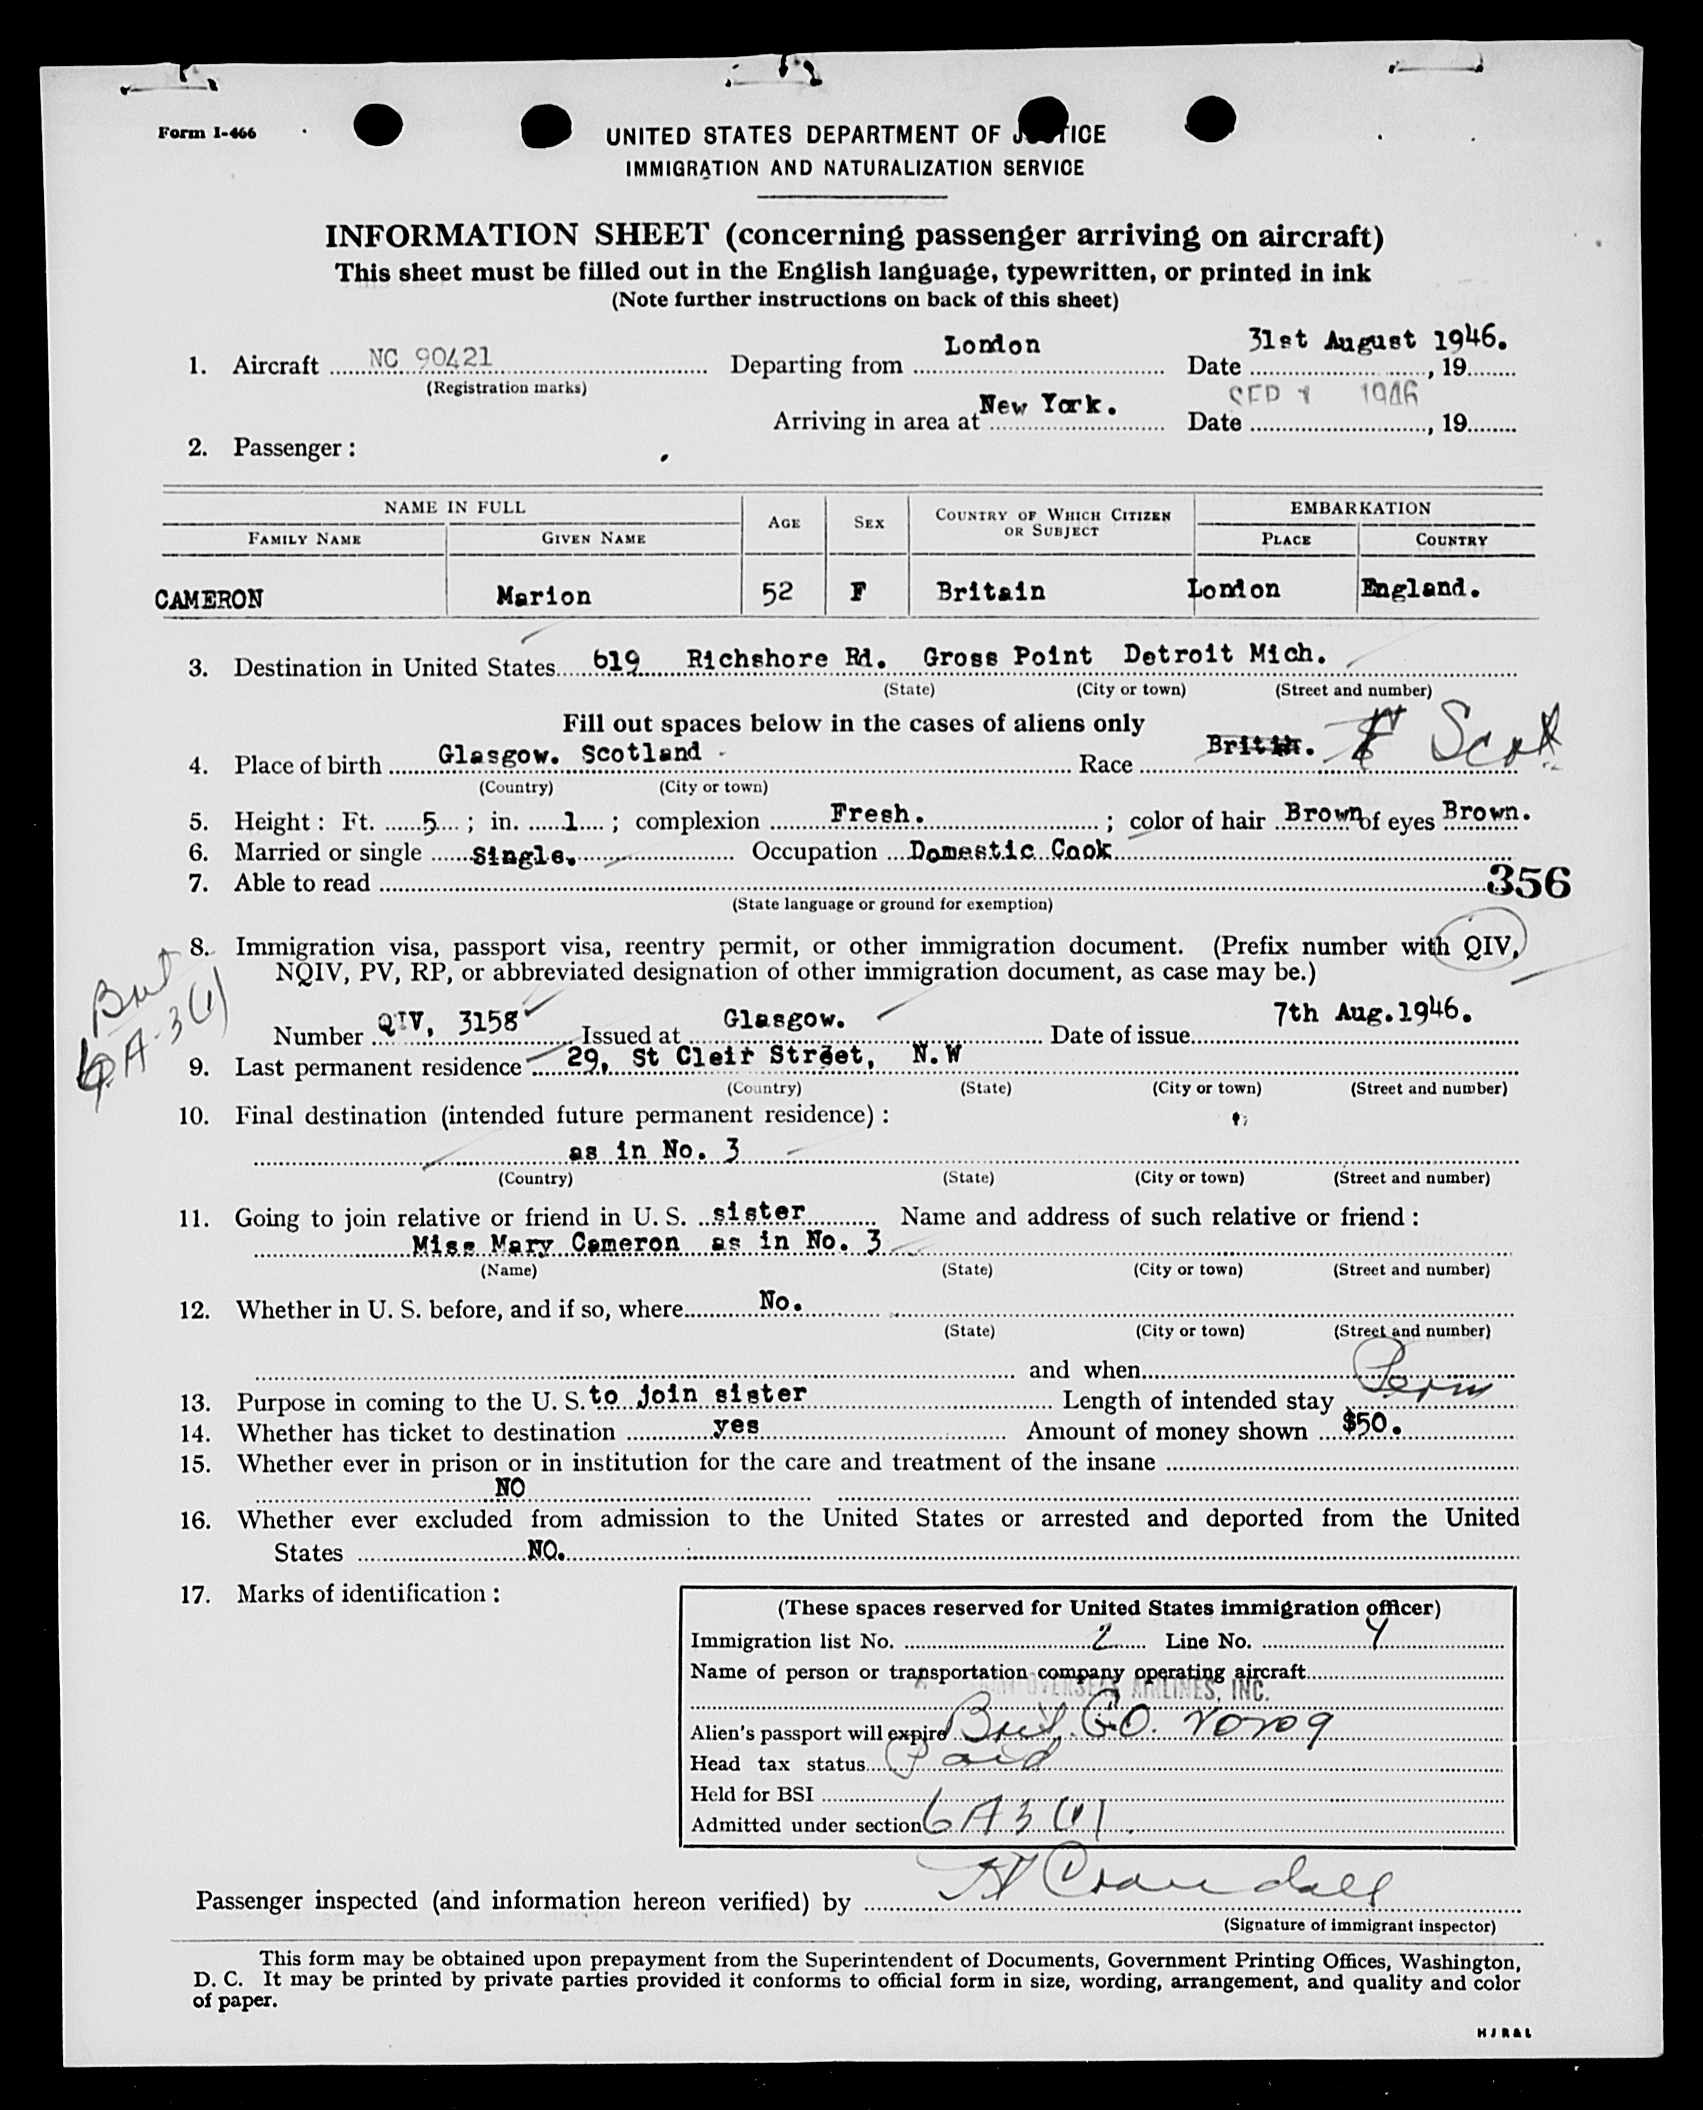 Form I-466
UNITED STATES DEPARTMENT OF JUSTICE
IMMIGRATION AND NATURALIZATION SERVICE
INFORMATION SHEET (concerning passenger arriving on aircraft)
This sheet must be filled out in the English language, typewritten, or printed in ink
(Note further instructions on back of this sheet)
1. Aircraft NC 90421 Departing from London Date 31st August 1946. , 19
(Registration marks)
Arriving in area at New York. Date SEP 1 1946 , 19
2. Passenger:
NAME IN FULL AGE SEX COUNTRY OF WHICH CITIZEN OR SUBJECT EMBARKATION
FAMILY NAME GIVEN NAME PLACE COUNTRY
CAMERON Marion 52 F Britain London England.
3. Destination in United States 619 Richshore Rd. Gross Point Detroit Mich.
(State) (City or town) (Street and number)
Fill out spaces below in the cases of aliens only
4. Place of birth Glasgow. Scotland - Race Scot
(Country) (City or town)
5. Height: Ft. 5 ; in. 1 ; complexion Fresh. ; color of hair Brown of eyes Brown.
6. Married or single Single. Occupation Domestic Cook
7. Able to read 356
(State language or ground for exemption)
8. Immigration visa, passport visa, reentry permit, or other immigration document. (Prefix number with QIV,
NQIV, PV, RP, or abbreviated designation of other immigration document, as case may be.)
Brit
6A-3(1)
Number QIV, 3158 Issued at Glasgow. Date of issue 7th Aug. 1946.
9. Last permanent residence 29, St Cleir Street, N.W
(Country) (State) (City or town) (Street and number)
10. Final destination (intended future permanent residence):
as in No. 3
(Country) (State) (City or town) (Street and number)
11. Going to join relative or friend in U. S. sister Name and address of such relative or friend:
Miss Mary Cameron as in No. 3
(Name) (State) (City or town) (Street and number)
12. Whether in U. S. before, and if so, where No.
(State) (City or town) (Street and number)
and when
13. Purpose in coming to the U. S. to join sister Length of intended stay Perm
14. Whether has ticket to destination yes Amount of money shown $50.
15. Whether ever in prison or in institution for the care and treatment of the insane
NO
16. Whether ever excluded from admission to the United States or arrested and deported from the United
States NO.
17. Marks of identification:
(These spaces reserved for United States immigration officer)
Immigration list No. 2 Line No. 4
Name of person or transportation company operating aircraft
OVERSEAS AIRLINES, INC.
Alien's passport will expire Brit. G.O.
Head tax status Paid
Held for BSI
Admitted under section 6A3(1)
Passenger inspected (and information hereon verified) by H Crandall
(Signature of immigrant inspector)
This form may be obtained upon prepayment from the Superintendent of Documents, Government Printing Offices, Washington,
D. C. It may be printed by private parties provided it conforms to official form in size, wording, arrangement, and quality and color
of paper.
HJR&L